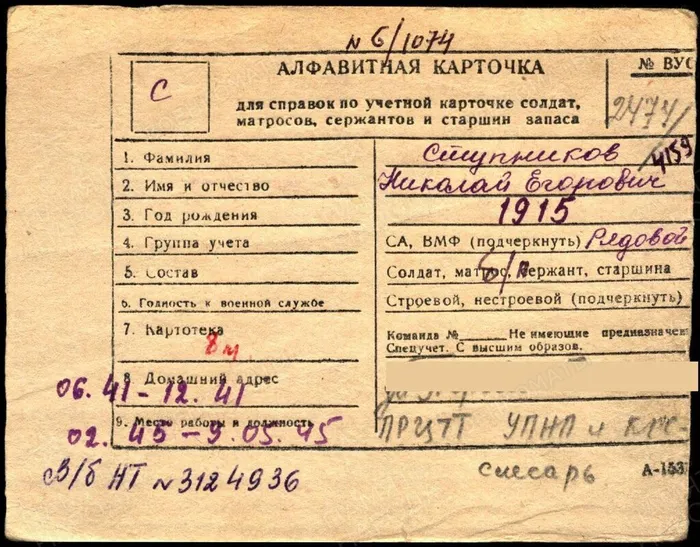 N 6/1074
АЛФАВИТНАЯ КАРТОЧКА
№ ВУС
С
для справок по учетной карточке солдат,
матросов, сержантов и старшин запаса
2474/
4159
1. Фамилия Ступников
2. Имя и отчество Николай Егорович
3. Год рождения 1915
4. Группа учета СА, ВМФ (подчеркнуть) Рядовой
5. Состав Солдат, матрос, сержант, старшина
б/п
6. Годность к военной службе Строевой, нестроевой (подчеркнуть)
7. Картотека Команда № Не имеющие предназначен
Спецучет. С высшим образов.
8 м
8. Домашний адрес
06.41-12.41
9. Место работы и должность ПРЦТТ УПНП и
02.45-9.05.45
В/б НТ N 3124936
слесарь
А-153